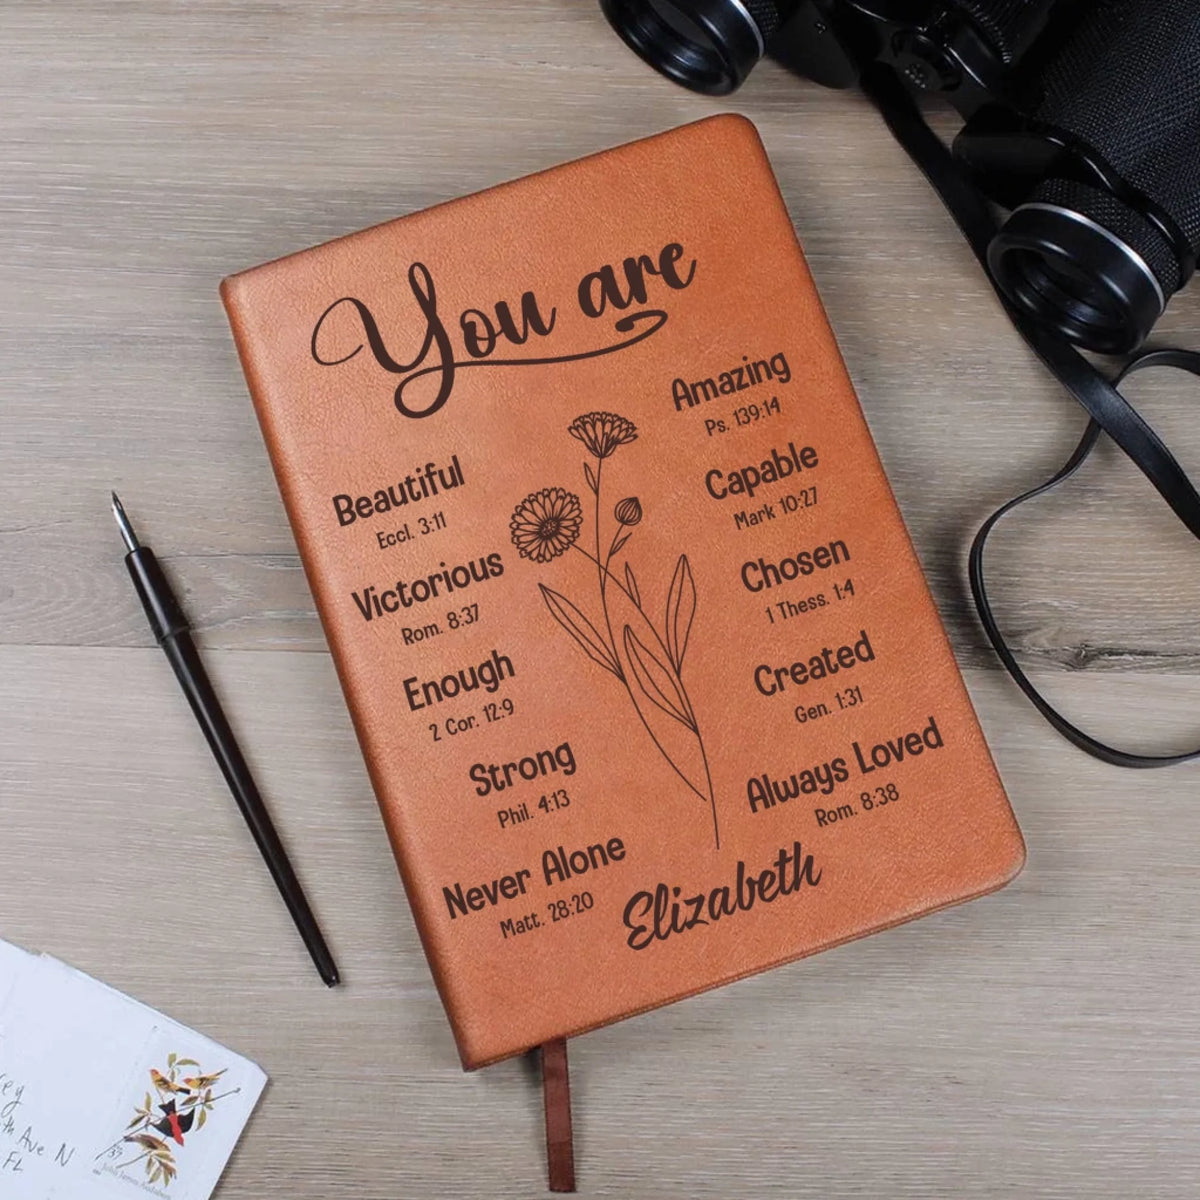 You are
Amazing
Ps. 139:14
Beautiful
Eccl. 3:11
Capable
Mark 10:27
Victorious
Rom. 8:37
Chosen
1 Thess. 1:4
Enough
2 Cor. 12:9
Created
Gen. 1:31
Strong
Phil. 4:13
Always Loved
Rom. 8:38
Never Alone
Matt. 28:20
Elizabeth
Ave N
FL
37